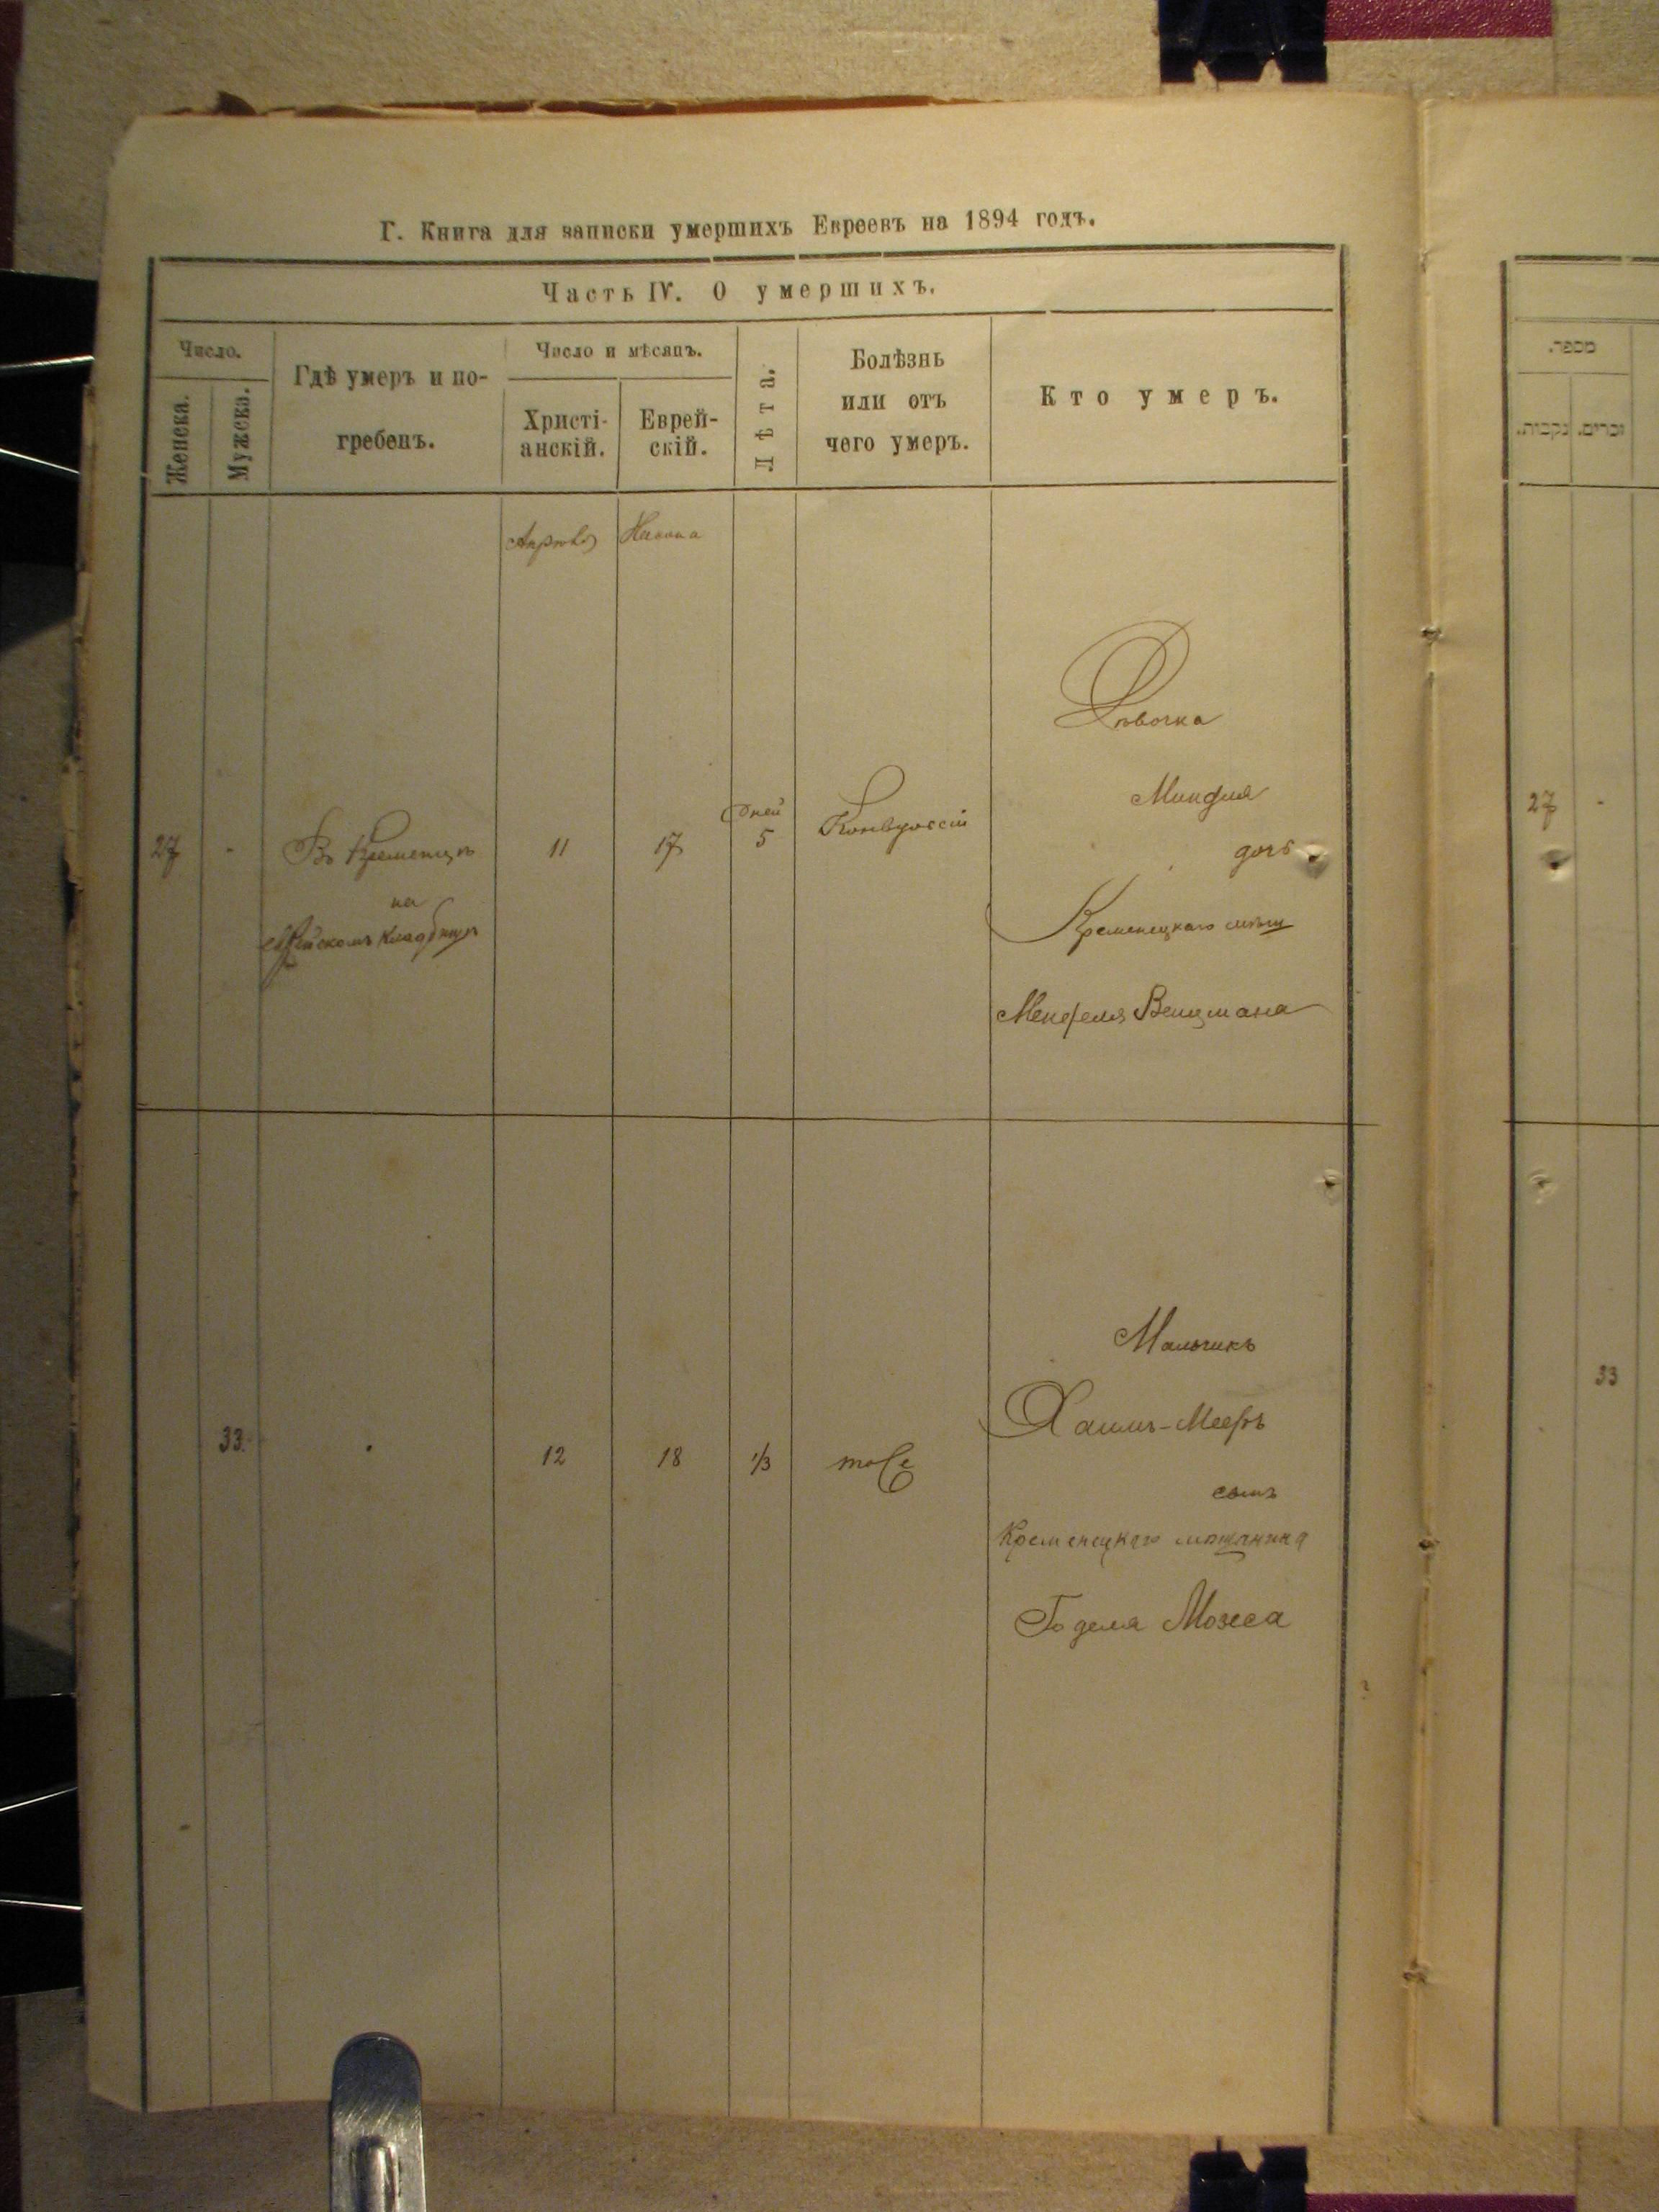 Г. Книга для записки умершихъ Евреевъ на 1894 годъ.
Часть IV. О умершихъ.
Число.
Женска.
Мужска.
Гдѣ умеръ и по-
гребенъ.
Число и мѣсяцъ.
Христі-
анскій.
Еврей-
скій.
Лѣта.
Болѣзнь
или отъ
чего умеръ.
Кто умеръ.
Апрѣля Нисона
27 - Въ Кременцѣ
на
кладбищѣ
11 17
дней
5
Конвульсіи
Дѣвочка
Миндля
дочь
Кременецкаго мѣщ
Менделя Вецмана
33. 12 18 1/3 тоже
Мальчикъ
Хаимъ-Мееръ
сынъ
Кременецкаго мѣщанина
Годеля
מספר.
נקבות.
זכרים.
27 -
33